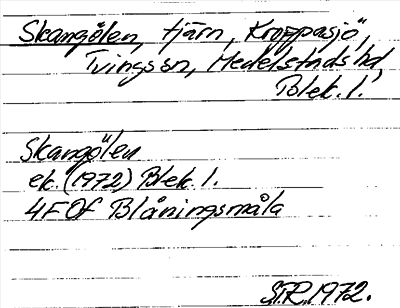 Skangölen, tjärn, Kroppasjö,
Tvings sn, Medelstads hd,
Blek. l.
Skangölen
ek. (1972) Blek. l.
4F Of Blåningsmåla
STR 1972.